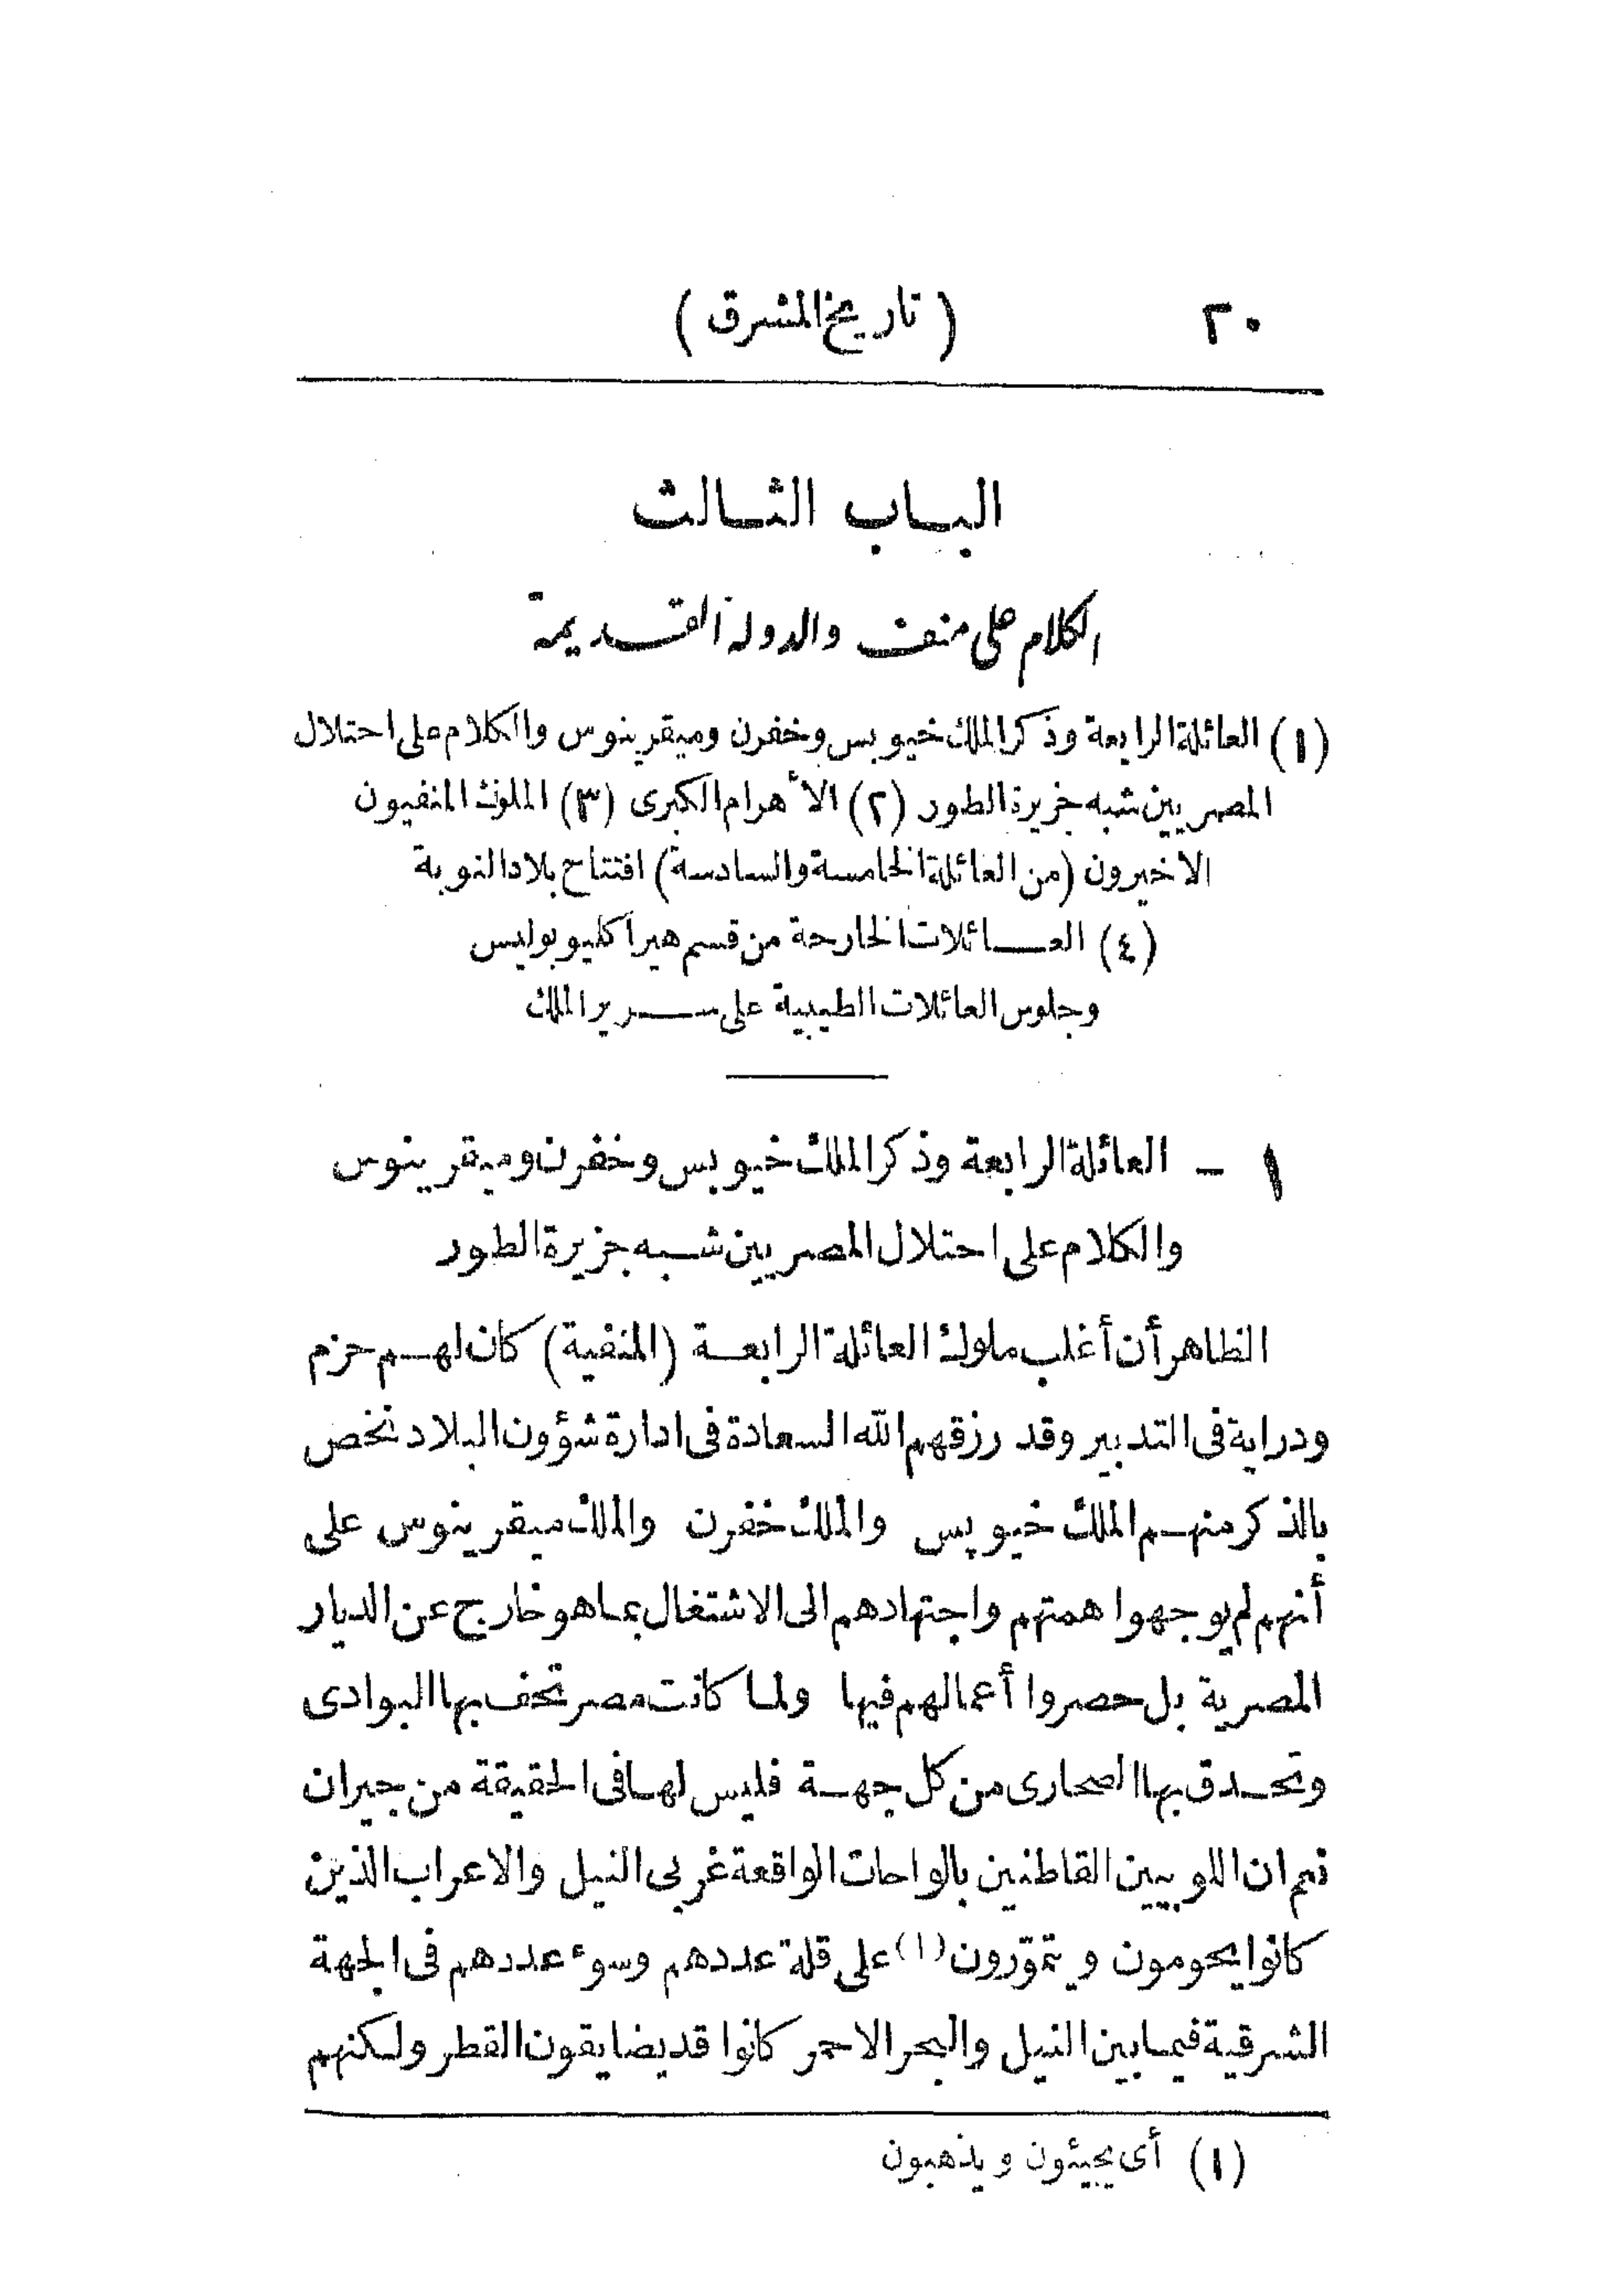 ٢٠ (تاريخ المشرق)
الباب الثالث
الكلام على منف والدولة القديمة
(١) العائلة الرابعة وذكر الملك خيوبس وخفرن وميقرينوس والكلام على احتلال
المصريين شبه جزيرة الطور (٢) الأهرام الكبرى (٣) الملوك المنفيون
الاخيرون (من العائلة الخامسة والسادسة) افتتاح بلاد النوبة
(٤) العائلات الخارجة من قسم هيراكليوبوليس
وجلوس العائلات الطيبية على سرير الملك
١ - العائلة الرابعة وذكر الملك خيوبس وخفرن وميقرينوس
والكلام على احتلال المصريين شبه جزيرة الطور
الظاهر أن أغلب ملوك العائلة الرابعة (المنفية) كان لهم حزم
ودراية فى التدبير وقد رزقهم الله السعادة فى ادارة شؤون البلاد نخص
بالذكر منهم الملك خيوپس والملك خفرن والملك ميقرينوس على
أنهم لم يوجهوا همتهم واجتهادهم الى الاشتغال بما هو خارج عن الديار
المصرية بل حصروا أعمالهم فيها ولما كانت مصر تحف بها البوادى
وتحدق بها الصحارى من كل جهة فليس لها فى الحقيقة من جيران
نعم ان اللوبيين القاطنين بالواحات الواقعة غربى النيل والاعراب الذين
كانوا يحومون ويتموّرون (١) على قلة عددهم وسوء عددهم فى الجهة
الشرقية فيما بين النيل والبحر الاحمر كانوا قد يضايقون القطر ولكنهم
(١) أى يجيئون ويذهبون